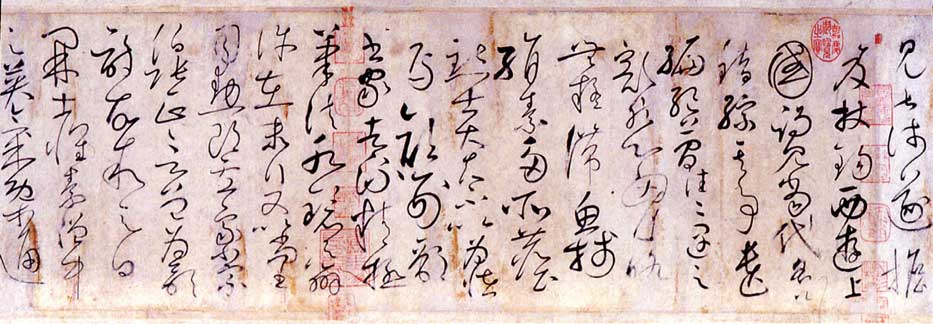 見甚淺遂擔
笈杖錫西遊上
國謁見當代名公
錯綜其事遺
編絕簡往往遇之
豁然心胸略
無疑滯魚牋
絹素多所塵
點士大夫不以為怪
焉顏刑部
書家者流精極
筆法水鏡之辨
許在末行又以尚書
司勳郎盧象小宗
伯張正言曾為歌
詩故敘之曰
開士懷素僧中
之英氣概通